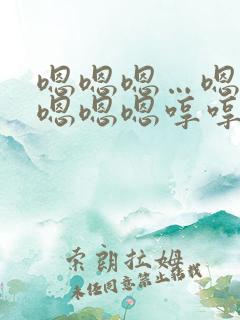 嗯嗯嗯…嗯
嗯嗯嗯哼哼
索朗扎姆
未经同意禁止转载